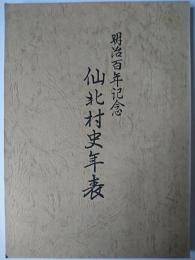 明治百年記念
仙北村史年表